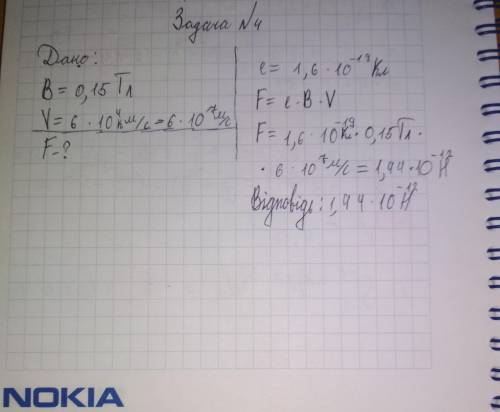 Задача N4
Дано:
B = 0,15 Тл
V = 6 · 10⁴ км/с = 6 · 10⁷ м/с
F - ?
e = 1,6 · 10⁻¹⁹ Кл
F = e · B · V
F = 1,6 · 10⁻¹⁹ Кл · 0,15 Тл ·
· 6 · 10⁷ м/с = 1,44 · 10⁻¹² Н
Відповідь: 1,44 · 10⁻¹² Н
NOKIA